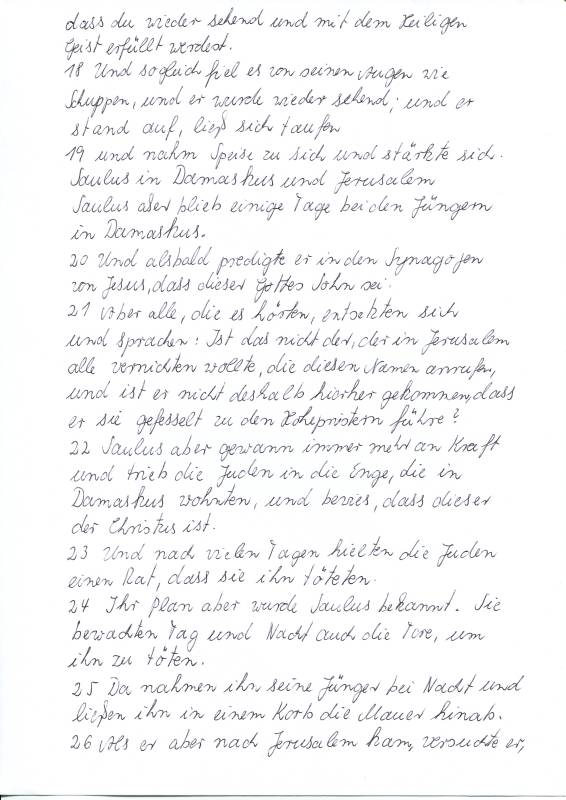 dass du wieder sehend und mit dem Heiligen
Geist erfüllt werdest.
18 Und sogleich fiel es von seinen Augen wie
Schuppen, und er wurde wieder sehend; und er
stand auf, ließ sich taufen
19 und nahm Speise zu sich und stärkte sich.
Saulus in Damaskus und Jerusalem
Saulus aber blieb einige Tage bei den Jüngern
in Damaskus.
20 Und alsbald predigte er in den Synagogen
von Jesus, dass dieser Gottes Sohn sei.
21 Aber alle, die es hörten, entsetzten sich
und sprachen: Ist das nicht der, der in Jerusalem
alle vernichten wollte, die diesen Namen anrufen,
und ist er nicht deshalb hierher gekommen, dass
er sie gefesselt zu den Hohepristern führe?
22 Saulus aber gewann immer mehr an Kraft
und trieb die Juden in die Enge, die in
Damaskus wohnten, und bewies, dass dieser
der Christus ist.
23 Und nach vielen Tagen hielten die Juden
einen Rat, dass sie ihn töteten.
24 Ihr Plan aber wurde Saulus bekannt. Sie
bewachten Tag und Nacht auch die Tore, um
ihn zu töten.
25 Da nahmen ihn seine Jünger bei Nacht und
ließen ihn in einem Korb die Mauer hinab.
26 Als er aber nach Jerusalem kam, versuchte er,